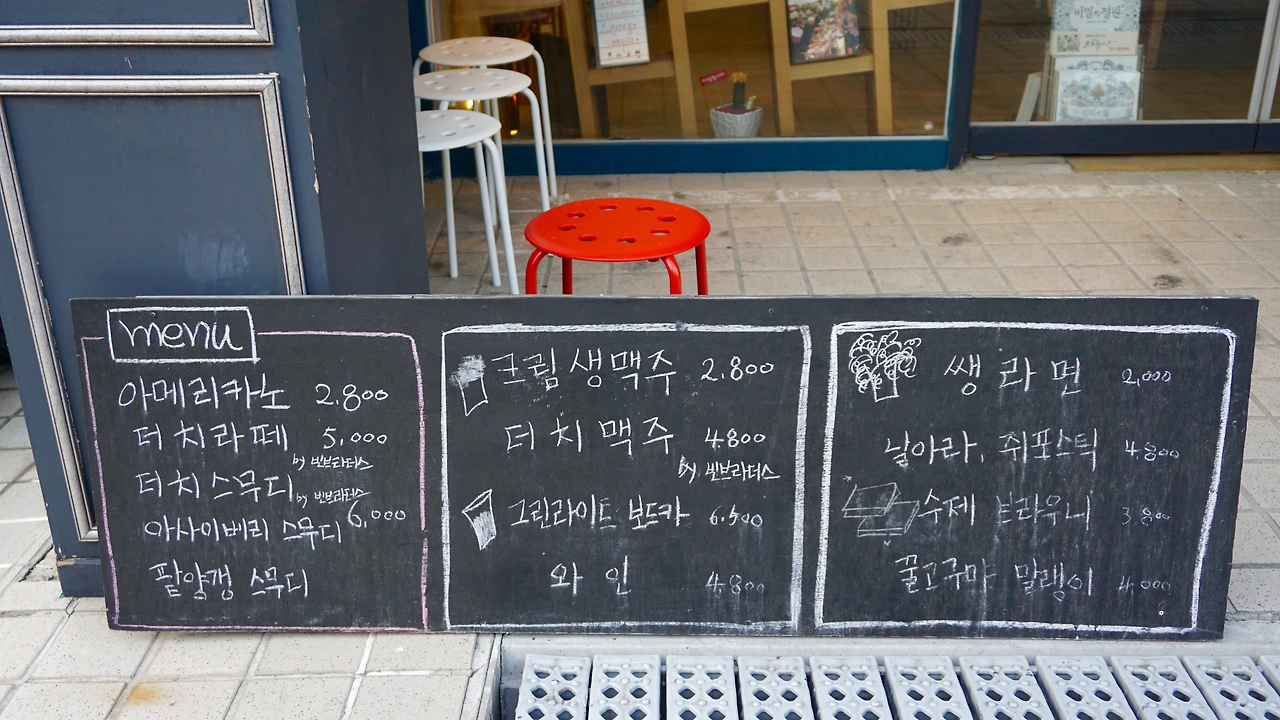 menu
아메리카노 2.800
더치라떼 5.000
by 빈브라더스
더치스무디 by 빈브라더스
6.000
아사이베리 스무디
팥양갱 스무디
크림생맥주 2.800
더치맥주 4800
by 빈브라더스
그린라이트 보드카 6.500
와인 4800
쌩라면 2,000
날아라, 쥐포스틱 4800
수제 브라우니 3800
꿀고구마 말랭이 4.000